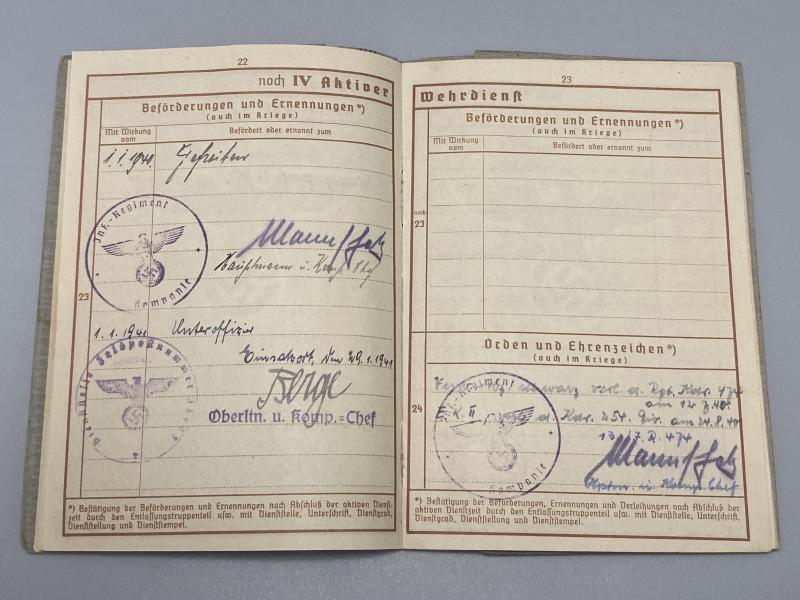 22
noch IV Aktiver
Beförderungen und Ernennungen*)
(auch im Kriege)
Mit Wirkung vom
Befördert oder ernannt zum
1.1.1941 Gefreiten
Inf.-Regiment
Kompanie
Hauptmann u. Komp. Chef
23
1.1.1941 Unteroffizier
Einsatzort, den 29.1.1941
Dienststelle Feldpostnummer
Berge
Oberltn. u. Komp.=Chef
*) Bestätigung der Beförderungen und Ernennungen nach Abschluß der aktiven Dienst-
zeit durch den Entlassungstruppenteil usw. mit Dienststelle, Unterschrift, Dienstgrad,
Dienststellung und Dienststempel.
23
Wehrdienst
Beförderungen und Ernennungen*)
(auch im Kriege)
Mit Wirkung vom
Befördert oder ernannt zum
noch
23
Orden und Ehrenzeichen*)
(auch im Kriege)
schwarz verl. d. Rgt. Kdr. 474
am 12.7.40.
K. II d. Kdr. 254. Div. am 24.8.40
24
Inf.-Regiment
Kompanie
13. I.R. 474
Hptm. u. Komp. Chef
*) Bestätigung der Beförderungen, Ernennungen und Verleihungen nach Abschluß der
aktiven Dienstzeit durch den Entlassungstruppenteil usw. mit Dienststelle, Unterschrift,
Dienstgrad, Dienststellung und Dienststempel.